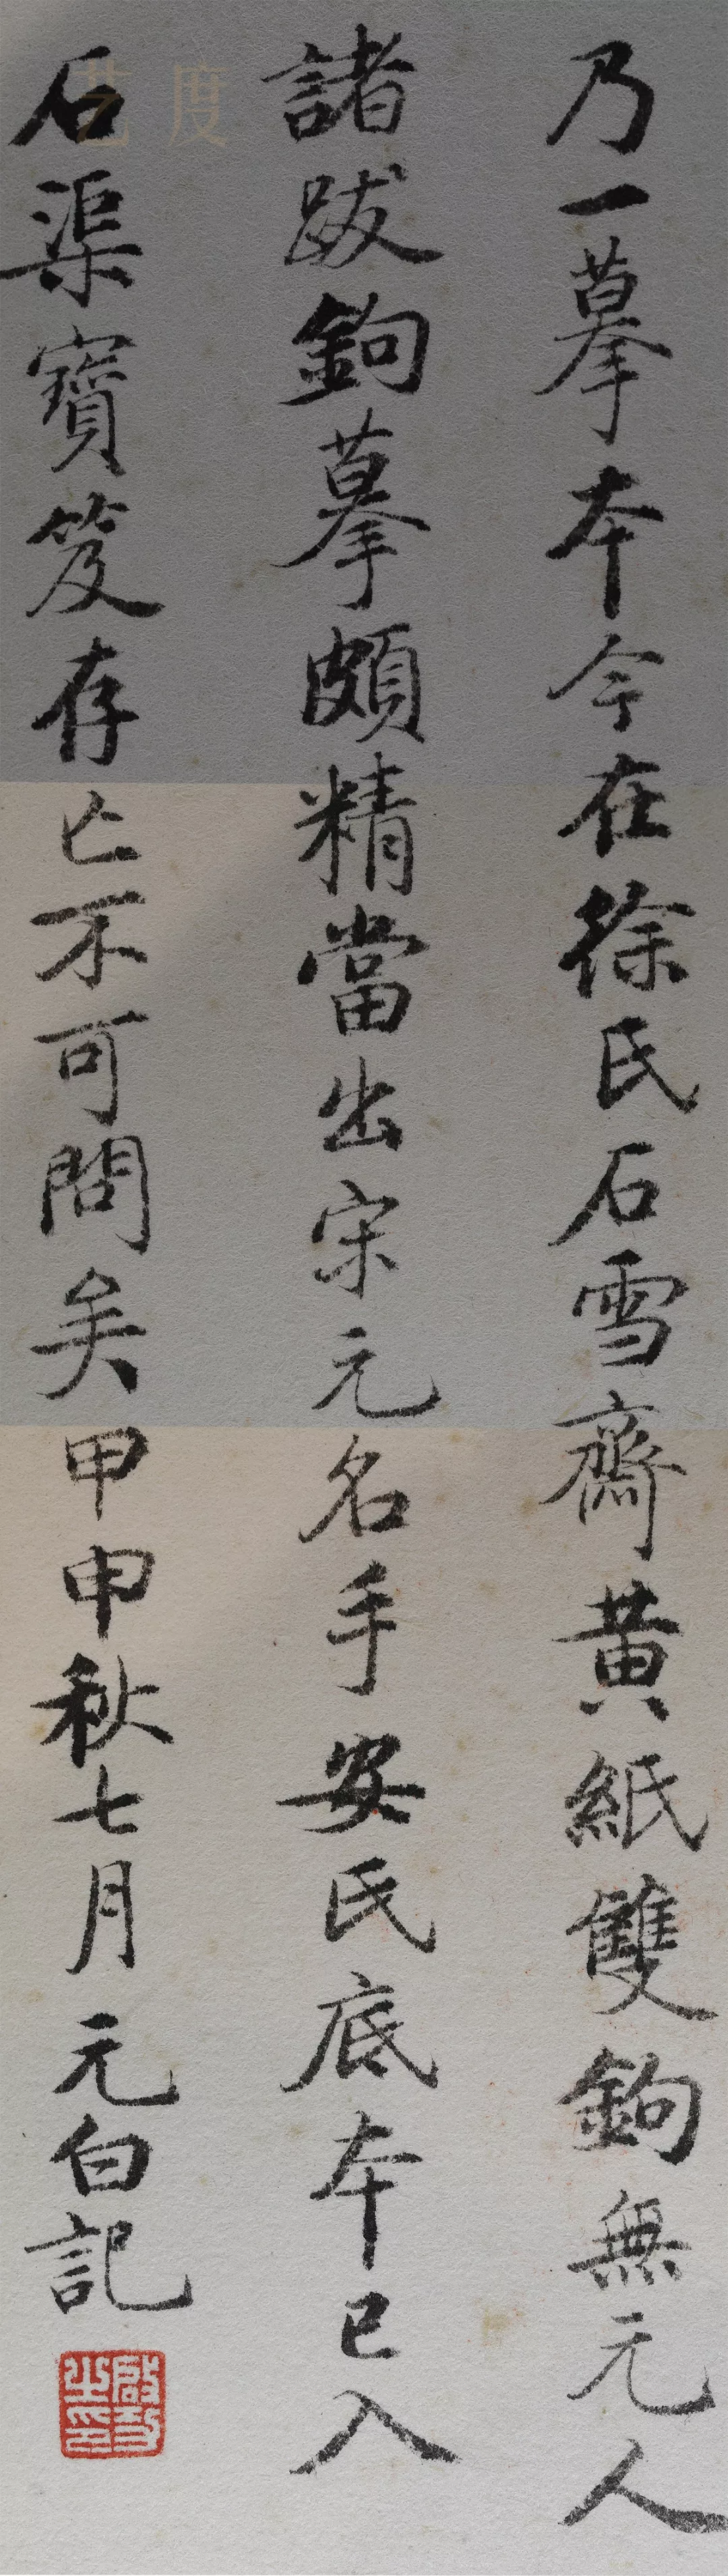 乃一摹本今在徐氏石雪齋黄紙雙鉤無元人
諸跋鉤摹頗精當出宋元名手安氏底本已入
石渠寶笈存亡不可問矣甲申秋七月元白記
啟功之印
艺度